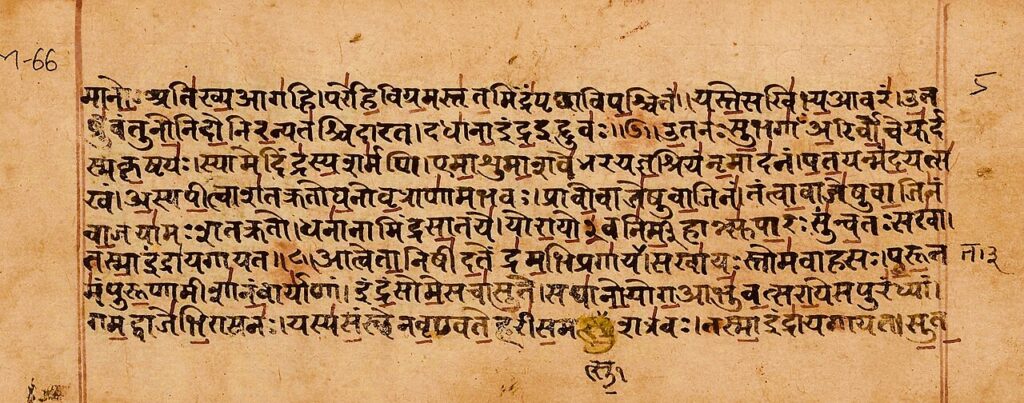 -66
5
मानो अतिख्य आगहि । परेहि विग्रमस्तृतमिंद्रं पृच्छा विपश्चितं । यस्ते सखिभ्य आवरं । उत
ब्रुवंतु नो निदो निरन्यतश्चिदारत । दधाना इंद्र इद्दुवः ॥७॥ उत नः सुभगाँ अरिर्वोचेयुर्द
स्म कृष्टयः । स्यामेदिंद्रस्य शर्मणि । एमाशुमाशवे भर यज्ञश्रियं नृमादनं । पतयन्मंदयत्स
खं । अस्य पीत्वा शतक्रतो घनो वृत्राणामभवः । प्रावो वाजेषु वाजिनं । तं त्वा वाजेषु वाजिनं
वाजयामः शतक्रतो । धनानामिंद्र सातये । यो रायो३वनिर्महान्त्सुपारः सुन्वतः सखा ।
तस्मा इंद्राय गायत ॥८॥ आत्वेता निषीदतेंद्रमभि प्रगायत । सखायः स्तोमवाहसः । पुरूत
मं पुरूणामीशानं वार्याणां । इंद्रं सोमे सचा सुते । स घा नो योग आभुवत्स राये स पुरंध्यां ।
गमद्वाजेभिरा स नः । यस्य संस्थे न वृण्वते हरी समत्सु शत्रवः । तस्मा इंद्राय गायत । सुत
त्सु१